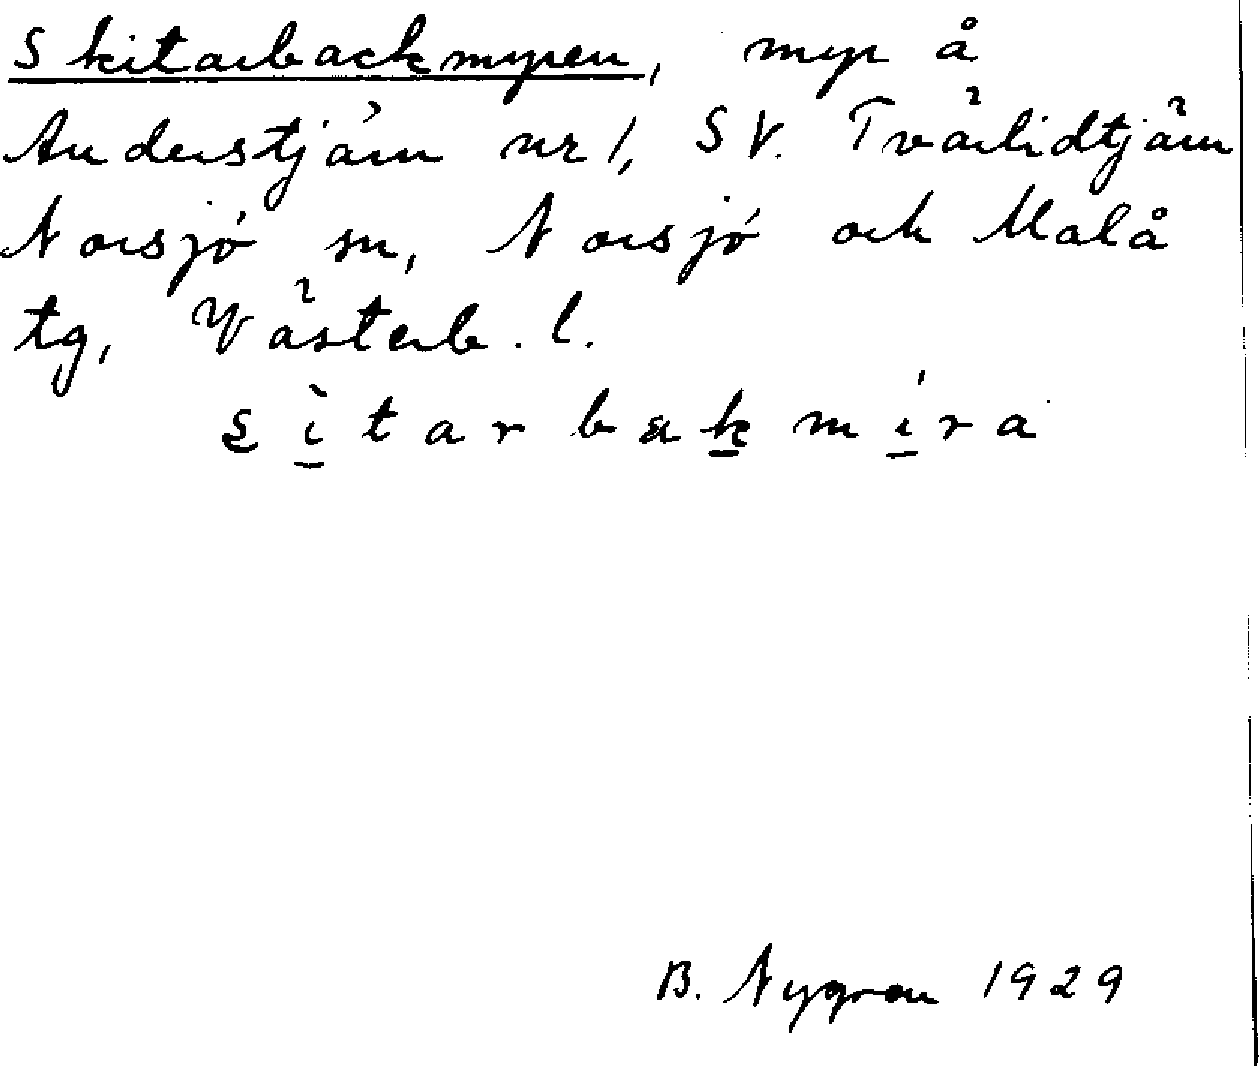 Skitarbackmyren, myr å
Anderstjärn nr 1, SV. Tvärlidtjärn
Norsjö sn, Norsjö och Malå
tg, Västerb. l.
sìtarbakmíra
B. Nygren 1929